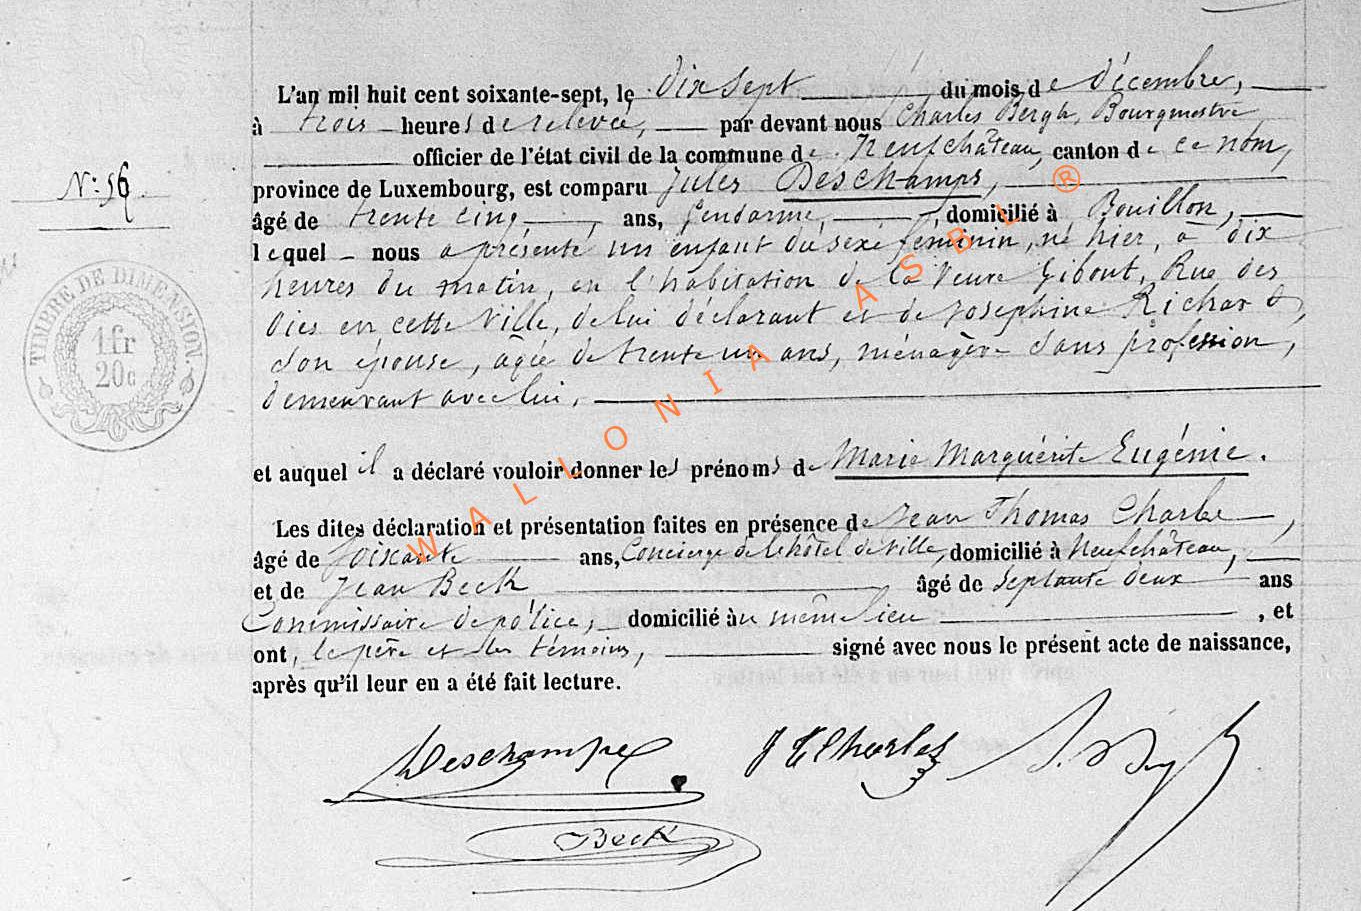 L'an mil huit cent soixante-sept, le dix sept du mois de décembre,
à trois heures de relevée, par devant nous Charles Bergh, Bourgmestre
officier de l'état civil de la commune de Neufchâteau, canton de ce nom,
N: 56
province de Luxembourg, est comparu Jules Deschamps,
âgé de trente cinq, ans, Gendarme, domicilié à Bouillon,
lequel nous a présenté un enfant du sexe féminin, né hier, à dix
heures du matin, en l'habitation de la Veuve Gibout, Rue des
en cette Ville, de lui déclarant et de Josephine Richard,
son épouse, âgée de trente un ans, ménagère sans profession,
demeurant avec lui,
TIMBRE DE DIMENSION
1fr
20c
et auquel il a déclaré vouloir donner les prénoms de Marie Marguérite Eugénie.
Les dites déclaration et présentation faites en présence de Jean Thomas
âgé de soixante ans, Concierge de l'hôtel de Ville, domicilié à Neufchâteau,
et de Jean Beck âgé de septante deux ans
Commissaire de police, domicilié au même lieu, et
ont, le père et les témoins, signé avec nous le présent acte de naissance,
après qu'il leur en a été fait lecture.
Deschamps
Beck
WALLONIA ASBL ®